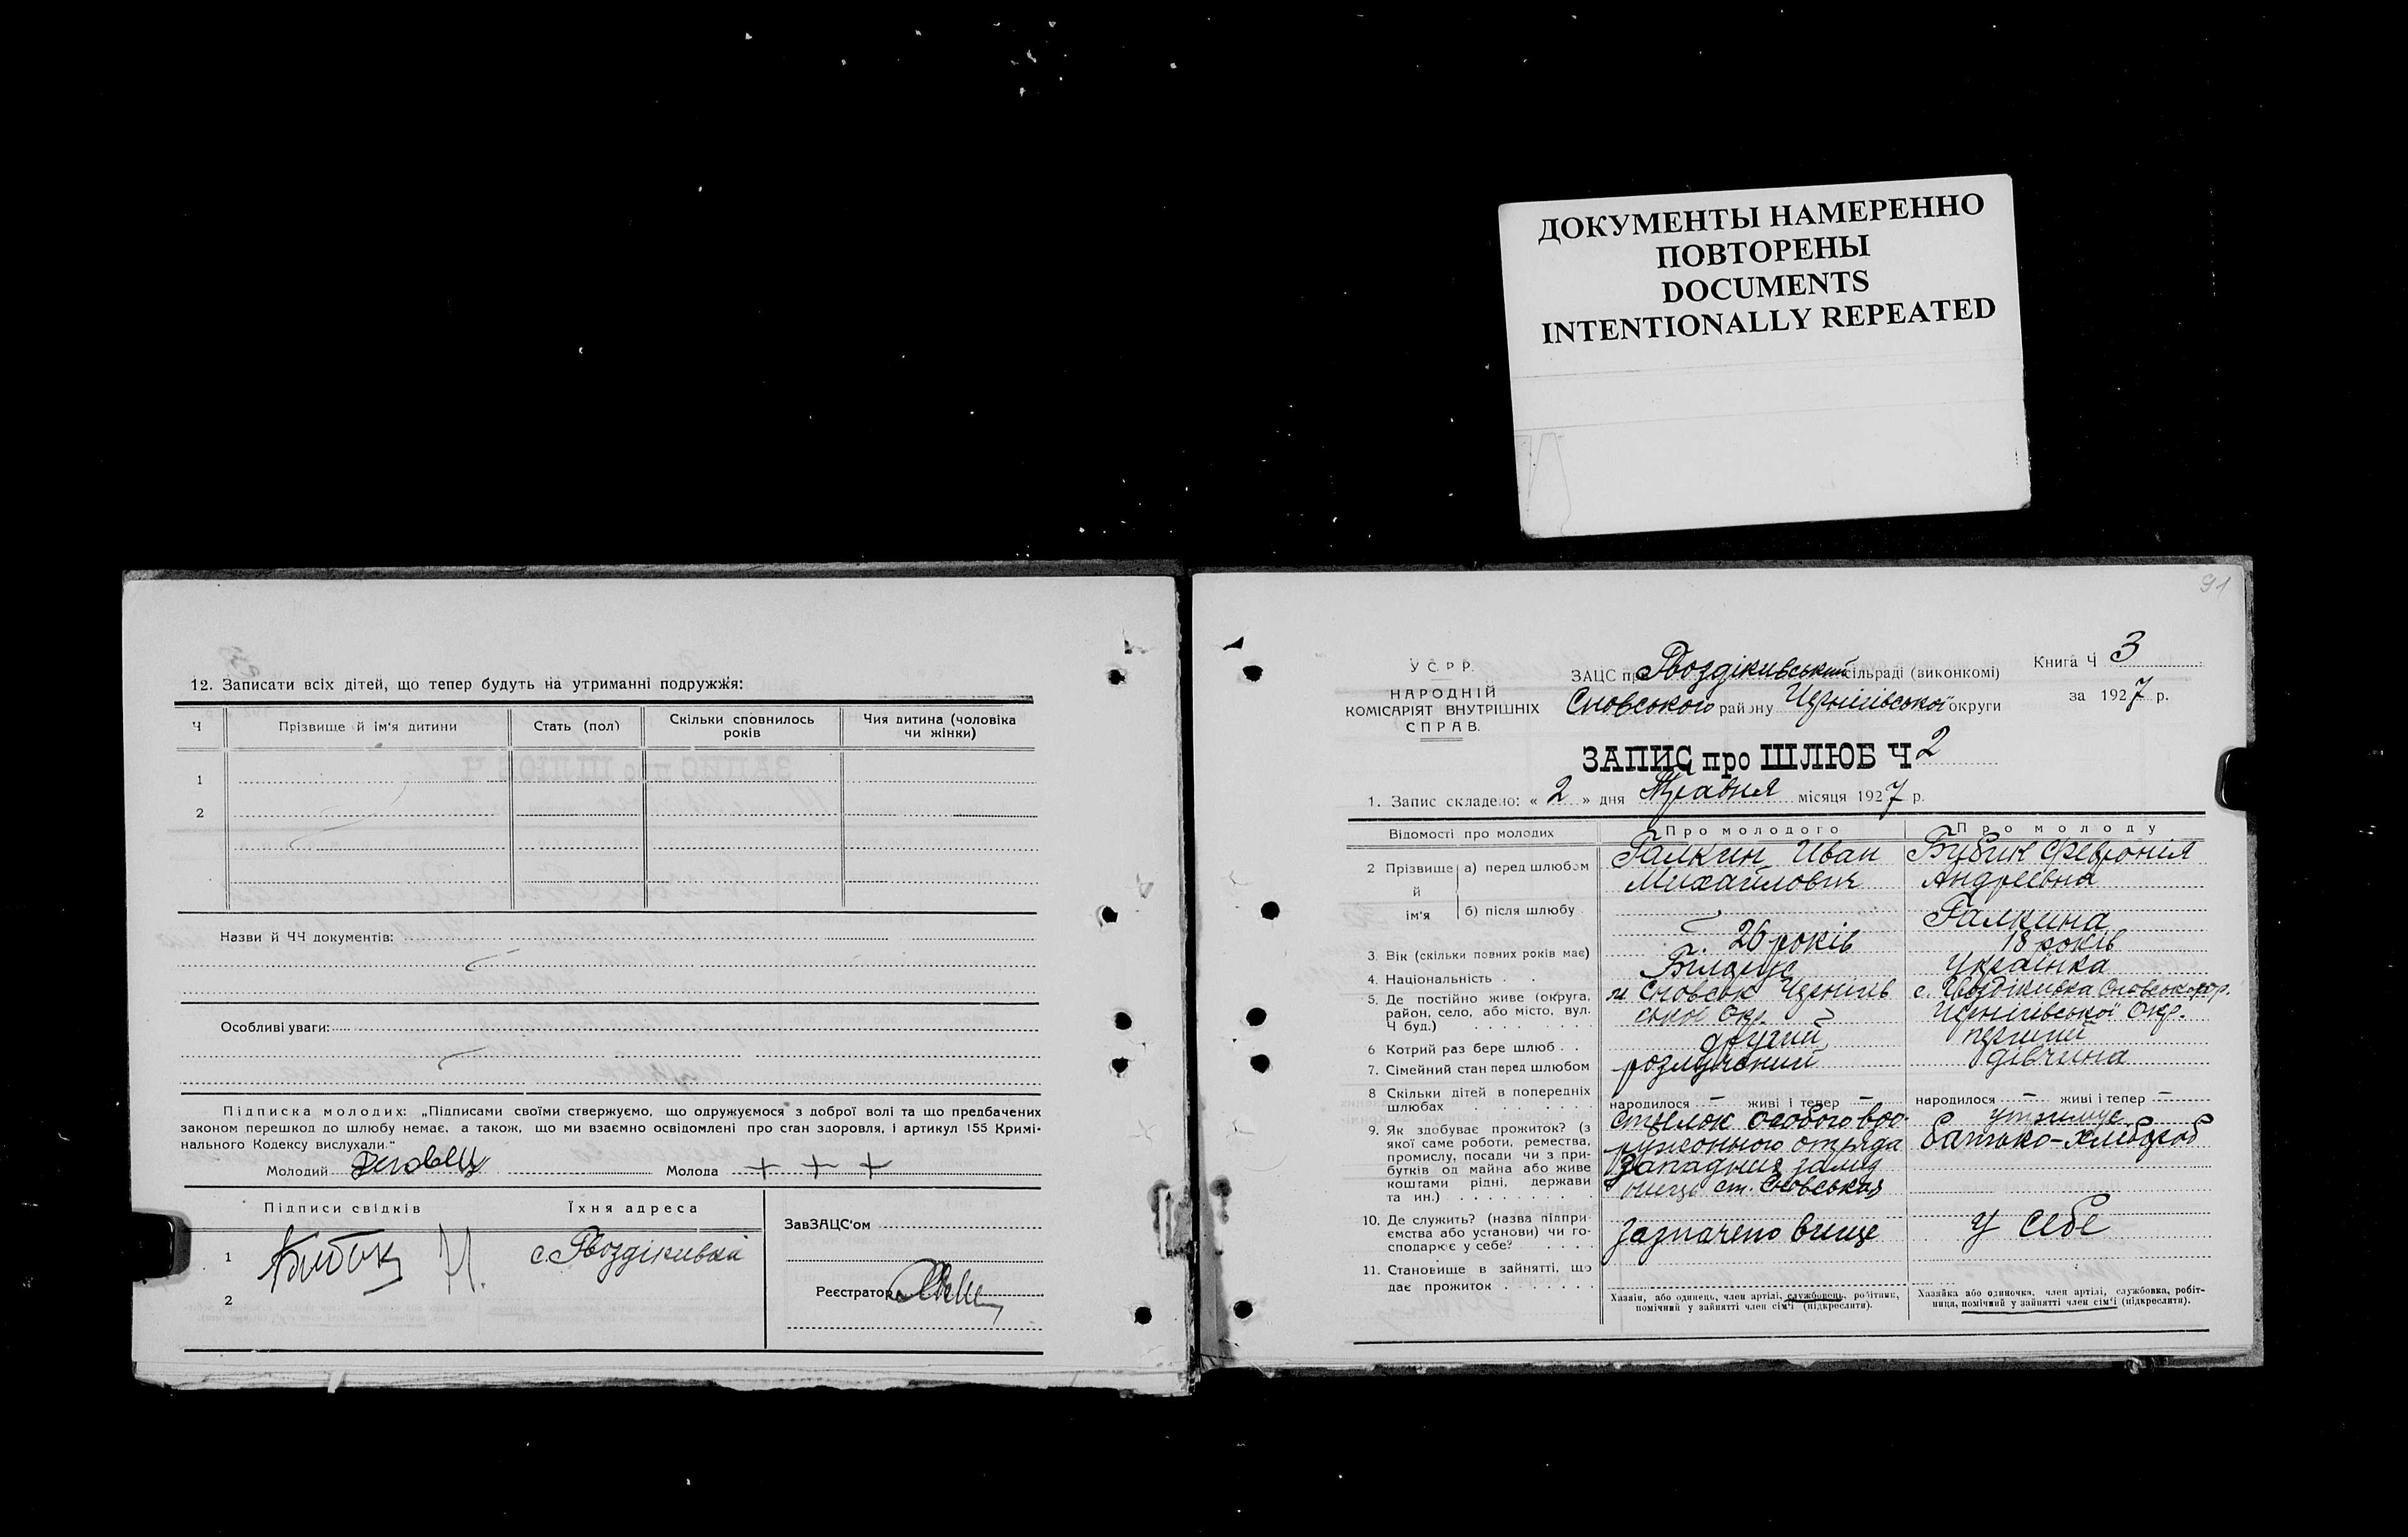 ДОКУМЕНТЫ НАМЕРЕННО
ПОВТОРЕНЫ
DOCUMENTS
INTENTIONALLY REPEATED
12. Записати всіх дітей, що тепер будуть на утриманні подружжя:
Ч Прізвище й ім'я дитини Стать (пол) Скільки сповнилось років Чия дитина (чоловіка чи жінки)
1
2
Назви й ЧЧ документів:
Особливі уваги:
Підписка молодих: „Підписами своїми ствержуємо, що одружуємося з доброї волі та що предбачених
законом перешкод до шлюбу немає, а також, що ми взаємно освідомлені про стан здоровля, і артикул 155 Кримі-
нального Кодексу вислухали."
Молодий Молода + + +
Підписи свідків Їхня адреса
1 с. Гвоздіківка
2
ЗавЗАЦС'ом
Реєстратор
91
У С Р Р.
НАРОДНІЙ
КОМІСАРІЯТ ВНУТРІШНІХ
СПРАВ.
ЗАЦС при Гвоздіківській сільраді (виконкомі)
Сновського району Чернігівської округи
Книга Ч 3
за 1927 р.
ЗАПИС про ШЛЮБ Ч 2
1. Запис складено: « 2 » дня Травня місяця 1927 р.
Відомості про молодих Про молодого Про молоду
2 Прізвище й ім'я а) перед шлюбом Галкин Иван Бубик Февронія
Михайлович Андреівна
б) після шлюбу Галкина
3. Вік (скільки повних років має) 26 років 18 років
4. Національність Білорус Українка
5. Де постійно живе (округа, м Сновськ Чернігів с. Гвоздіківка Сновського р.
район, село, або місто, вул. ської Окр. Чернігівської Окр.
Ч буд.)
6 Котрий раз бере шлюб другий перший
7. Сімейний стан перед шлюбом розлучений дівчина
8 Скільки дітей в попередніх
шлюбах народилося — живі і тепер — народилося — живі і тепер —
9. Як здобуває прожиток? (з Стрелок особого воо- утримує
якої саме роботи, ремества, ружонного отряда батько-хлібороб
промислу, посади чи з при- Западних
бутків од майна або живе ст. Сновськая
коштами рідні, держави
та ин.)
10. Де служить? (назва підпри- зазначено вище у себе
ємства або установи) чи го-
сподарює у себе?
11. Становище в зайнятті, що
дає прожиток
Хазяїн, або одинець, член артілі, службовець, робітник,
помічний у зайнятті член сім'ї (підкреслити).
Хазяйка або одиночка, член артілі, службовка, робіт-
ниця, помічний у зайнятті член сім'ї (підкреслити).